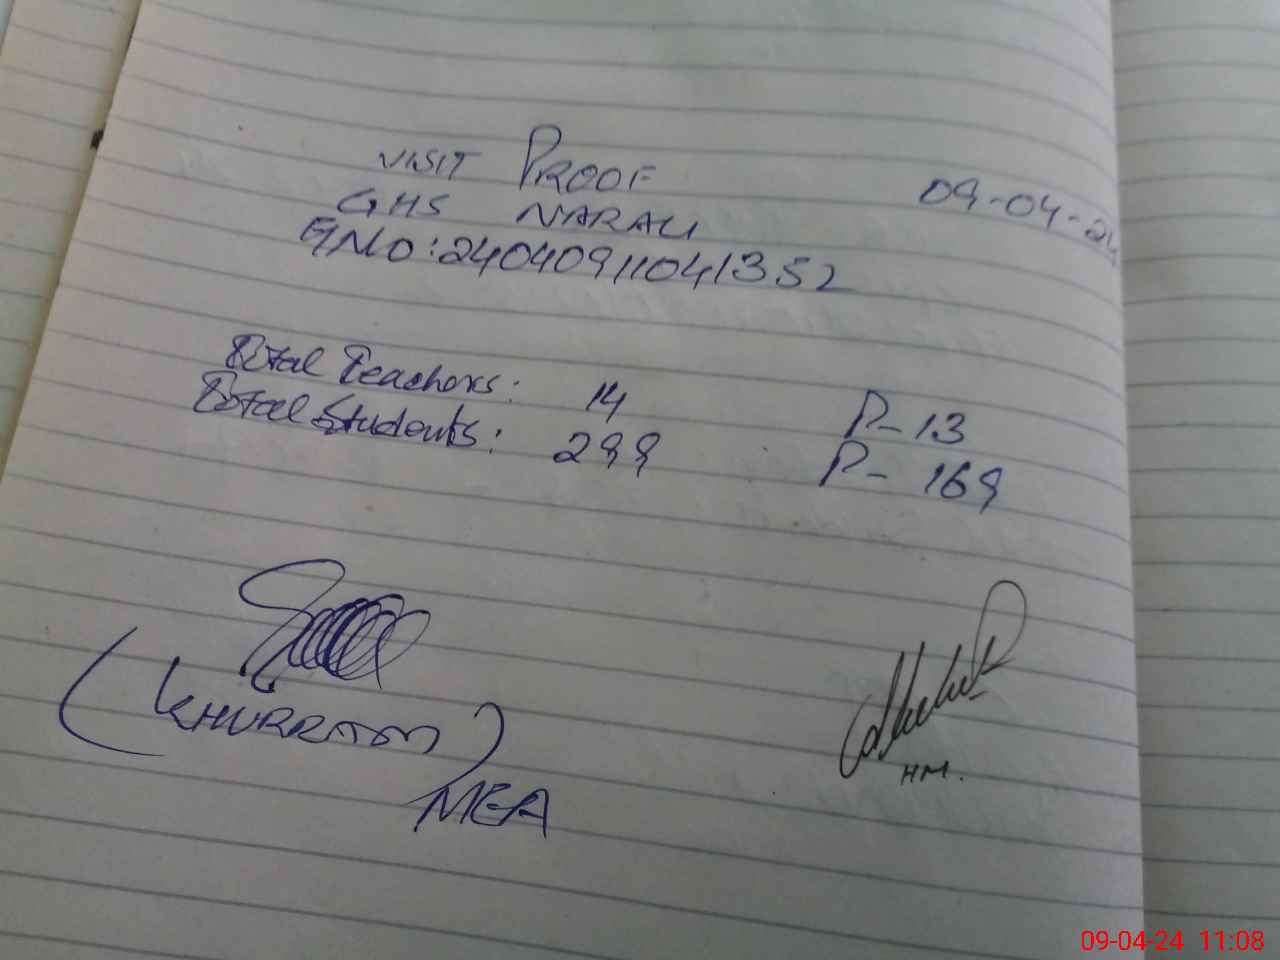 VISIT PROOF
09-04-24
GHS NARALI
GNO:24040911041352
Total Teachers: 14 P-13
Total Students: 299 P- 169
(KHURRAM)
MEA
HM.
09-04-24 11:08